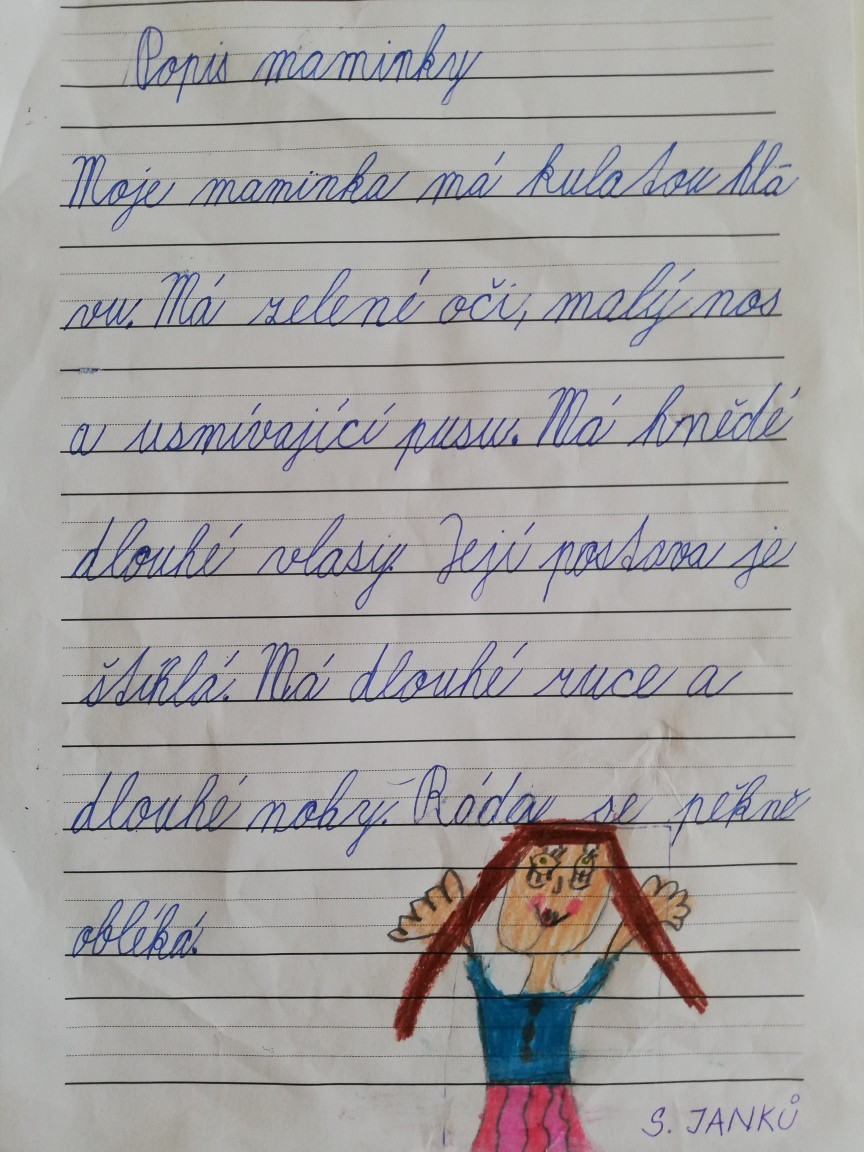 Popis maminky
Moje maminka má kulatou hla
vu. Má zelené oči, malý nos
a usmívající pusu. Má hnědé
dlouhé vlasy. Její postava je
štíhlá. Má dlouhé ruce a
dlouhé nohy. Ráda se pěkně
obléká.
S. JANKŮ